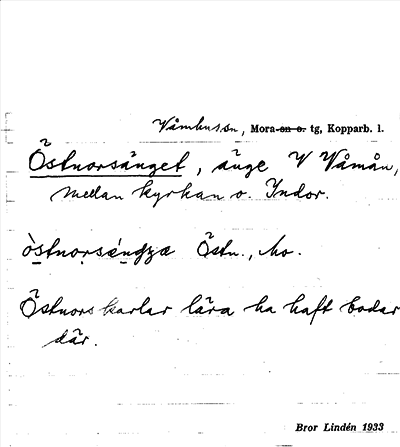 Våmhussn, Mora sn o. tg, Kopparb. l.
Östnorsänget, änge V Våmån,
mellan kyrkan o. Indor.
Östn., Mo.
Östnorskarlar lära ha haft bodar
där.
Bror Lindén 1933